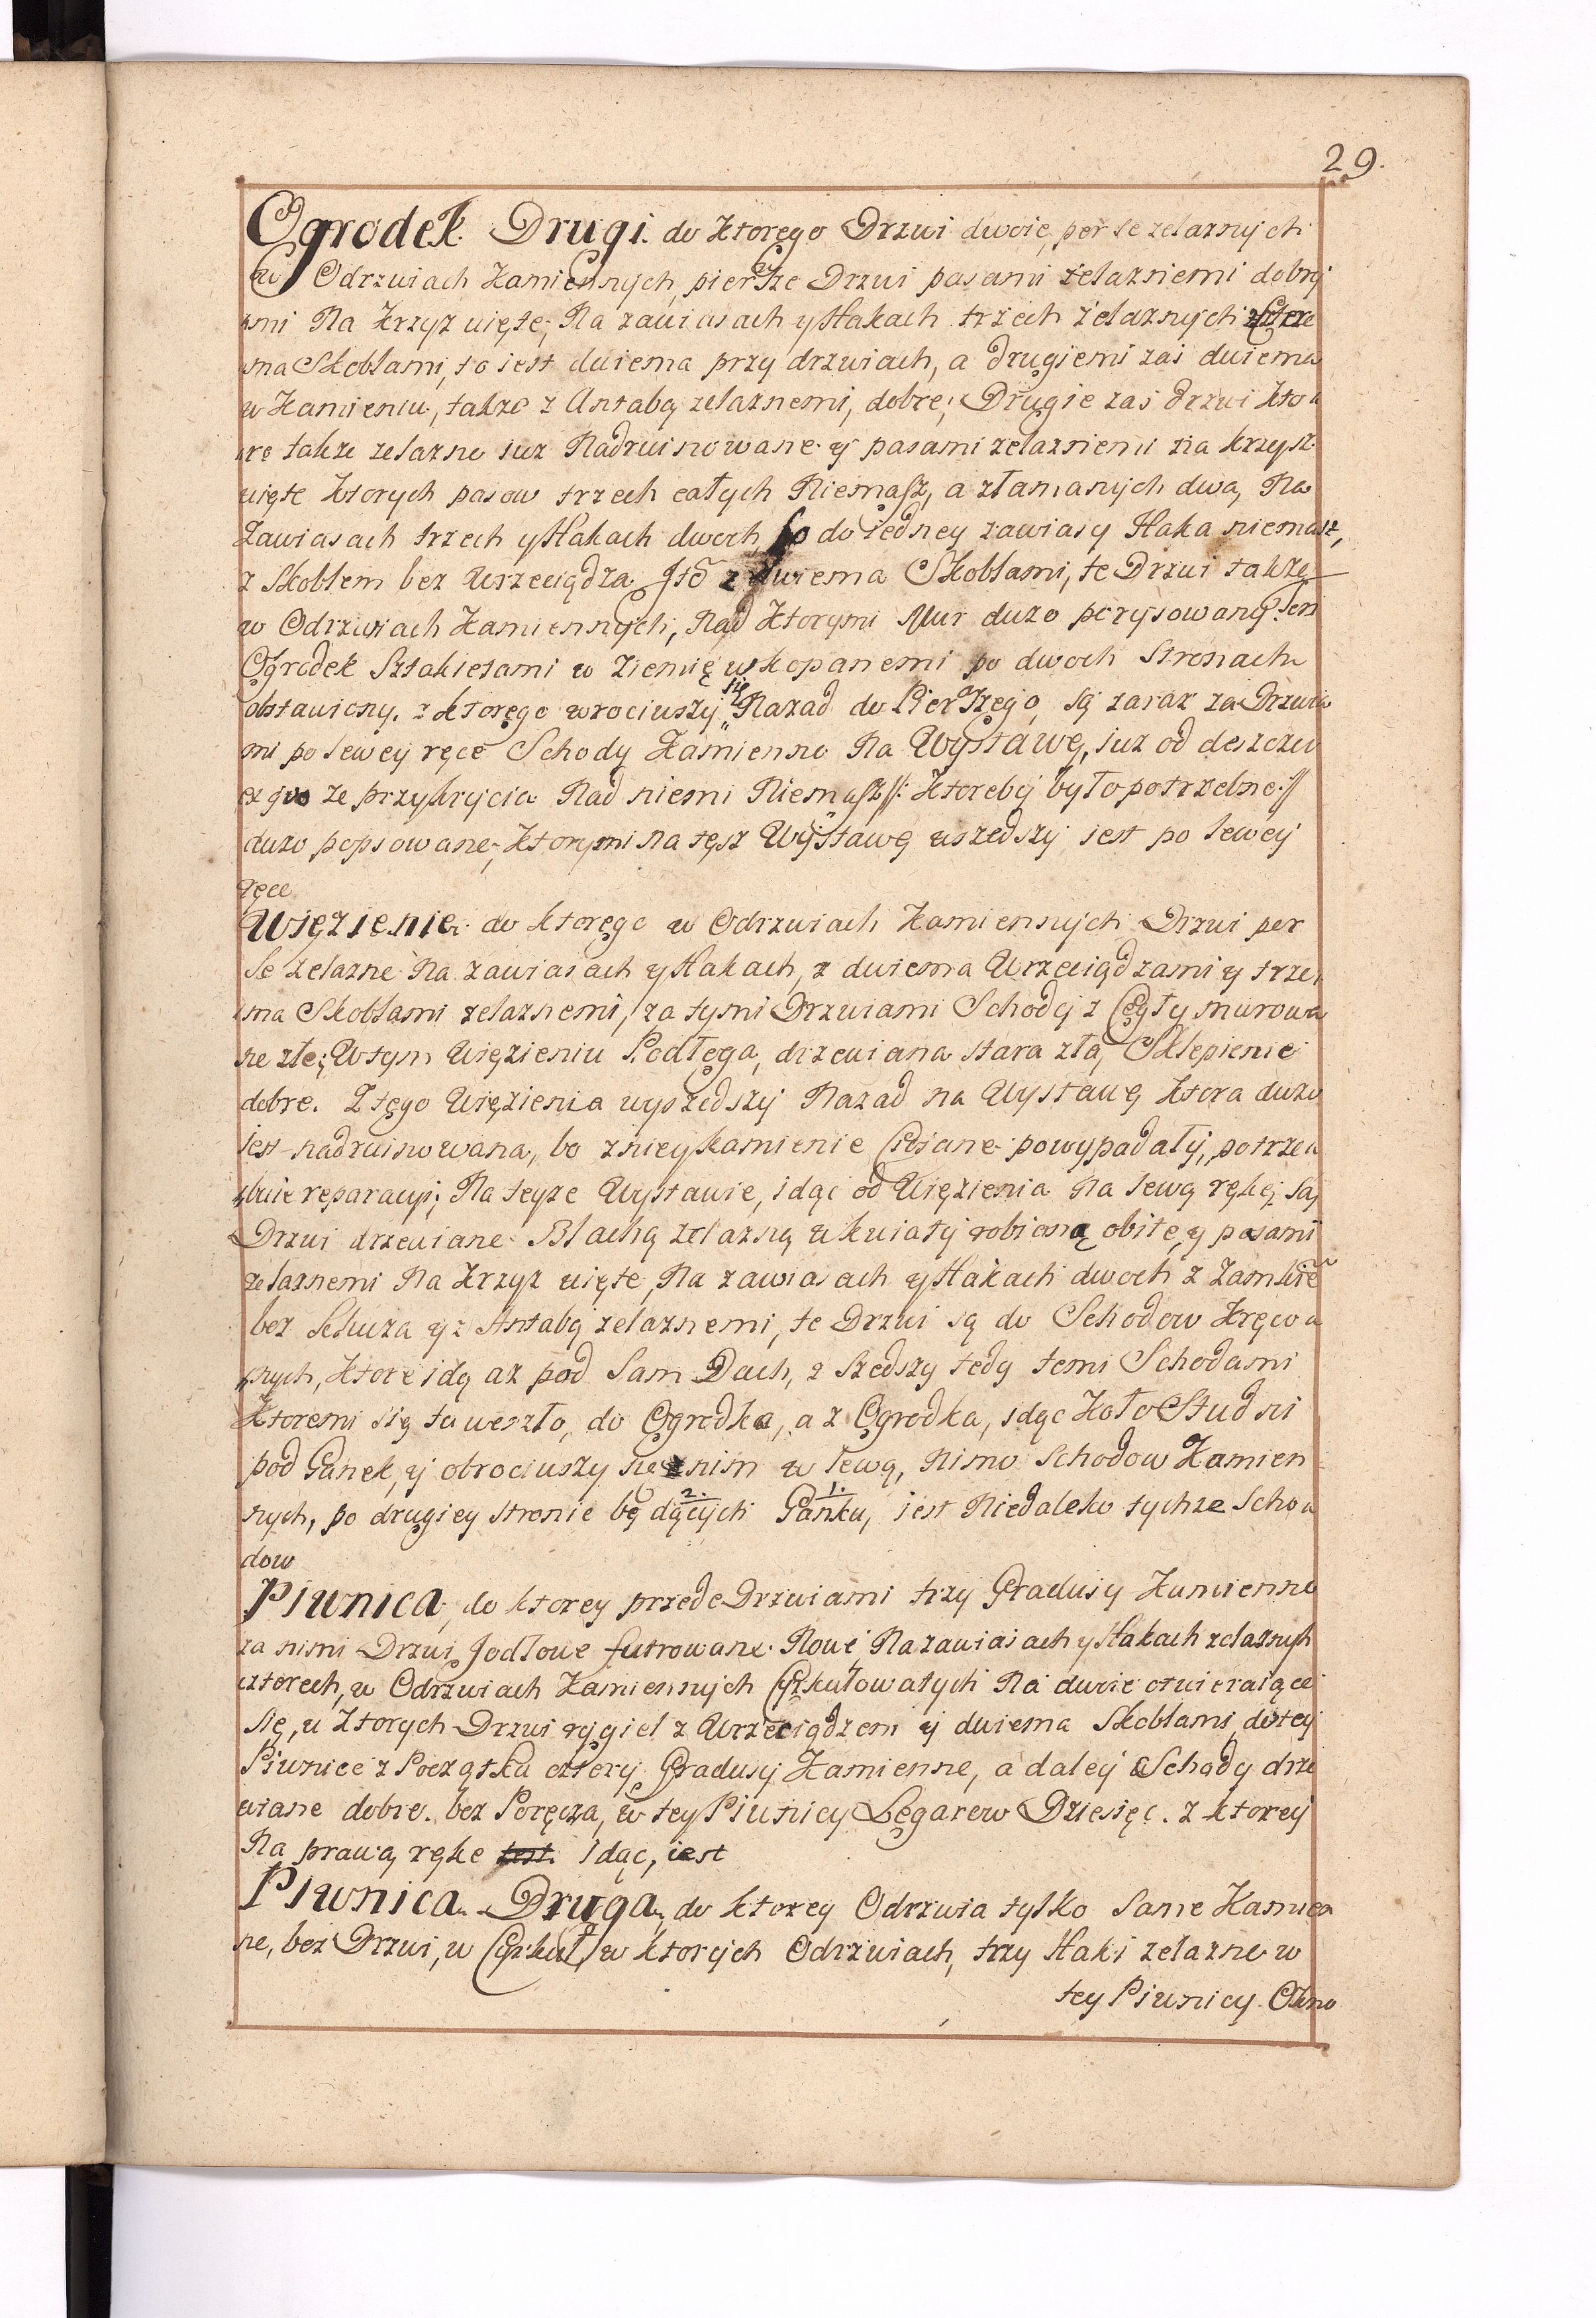 29.
Ogrodek Drugi. do ktorego Drzwi dwoie, per se zelaznych
w Odrzwiach kamiennych, pierwsze Drzwi pasami zelaznemi dobry
mi Na krzyz uięte, Na zawiasach y Hakach trzech zelaznych z cztere
ma Skoblami, to iest dwiema przy drzwiach, a drugiemi zaś dwiema
w kamieniu, takze z Antabą zelaznemi, dobre; Drugie zaś drzwi kto
re takze zelazne iuz Nadruinowane y pasami zelaznemi na krzysz
uięte ktorych pasow trzech całych Niemasz, a złamanych dwa, Na
Zawiasach trzech y Hakach dwoch, bo do iedney zawiasy Haka niemasz,
z Skoblem bez Wrzeciądza Jtō z dwiema Skoblami, te Drzwi takze
w Odrzwiach kamiennych, Nad ktorymi Mur duzo porysowany. Ten
Ogrodek Sztakietami w ziemię wkopanemi po dwoch Stronach
obstawiony. z ktorego wrociwszy się Nazad do Pierszego, są zaraz za Drzwia
mi po lewey ręce Schody kamienne Na Wystawę, iuz od deszczu
ex quo ze przykrycia Nad niemi Niemasz /: ktoreby było potrzebne :/
duzo popsowane, ktorymi na tęsz Wystawę wszedszy iest po lewey
ręce
Więzienie do ktorego w Odrzwiach kamiennych Drzwi per
se zelazne Na zawiasach y Hakach, z dwiema Wrzeciądzami y trze
ma Skoblami zelaznemi, za tymi Drzwiami Schody z Cegły murowa
ne złe; W tym Więzieniu Podłoga, drzewiana stara zła, Sklepienie
dobre. Z tego Więzienia wyszedszy Nazad na Wystawę ktora duzo
iest nadruinowana, bo z niey kamienie Ciosane powypadały, potrze
buie reparacyi; Na teyze Wystawie, idąc od Więzienia Na lewą rękę są
Drzwi drzewiane Blachą zelazną w kwiaty robioną obite, y pasami
zelaznemi Na krzyz uięte, Na zawiasach y Hakach dwoch z Zamkiē
bez klucza y z Antabą zelaznemi, te Drzwi są do Schodow kręco
nych, ktore idą az pod Sam Dach, z szedszy tedy temi Schodami
ktoremi się tu weszło, do Ogrodka, a z Ogrodka, idąc koło Studni
pod Ganek, y obrociwszy się z nim w lewą, Nimo Schodow kamien
nych, po drugiey stronie bę 2. dących 1. Ganku, iest Niedaleko tychze Scho
dow
Piwnica, do ktorey przede Drzwiami trzy Gradusy kamienne
za nimi Drzwi Jodłowe futrowane Nowe, Na zawiasach y Hakach zelaznych
cztorech, w Odrzwiach kamiennych Cyrkułowatych Na dwoie otwieraiące
się, u ktorych Drzwi rygiel z Wrzeciądzem y dwiema Skoblami, do tey
Piwnice z Początku cztery Gradusy kamienne, a daley Schody drze
wiane dobre. bez Poręcza, w tey Piwnicy Legarow Dziesięć. z ktorey
Na prawą ręke iest Idąc, iest
Piwnica Druga, do ktorey Odrzwia tylko Same kamien
ne, bez Drzwi, w Cyrkuł, w ktorych Odrzwiach, trzy Haki zelazne w
tey Piwnicy Okno